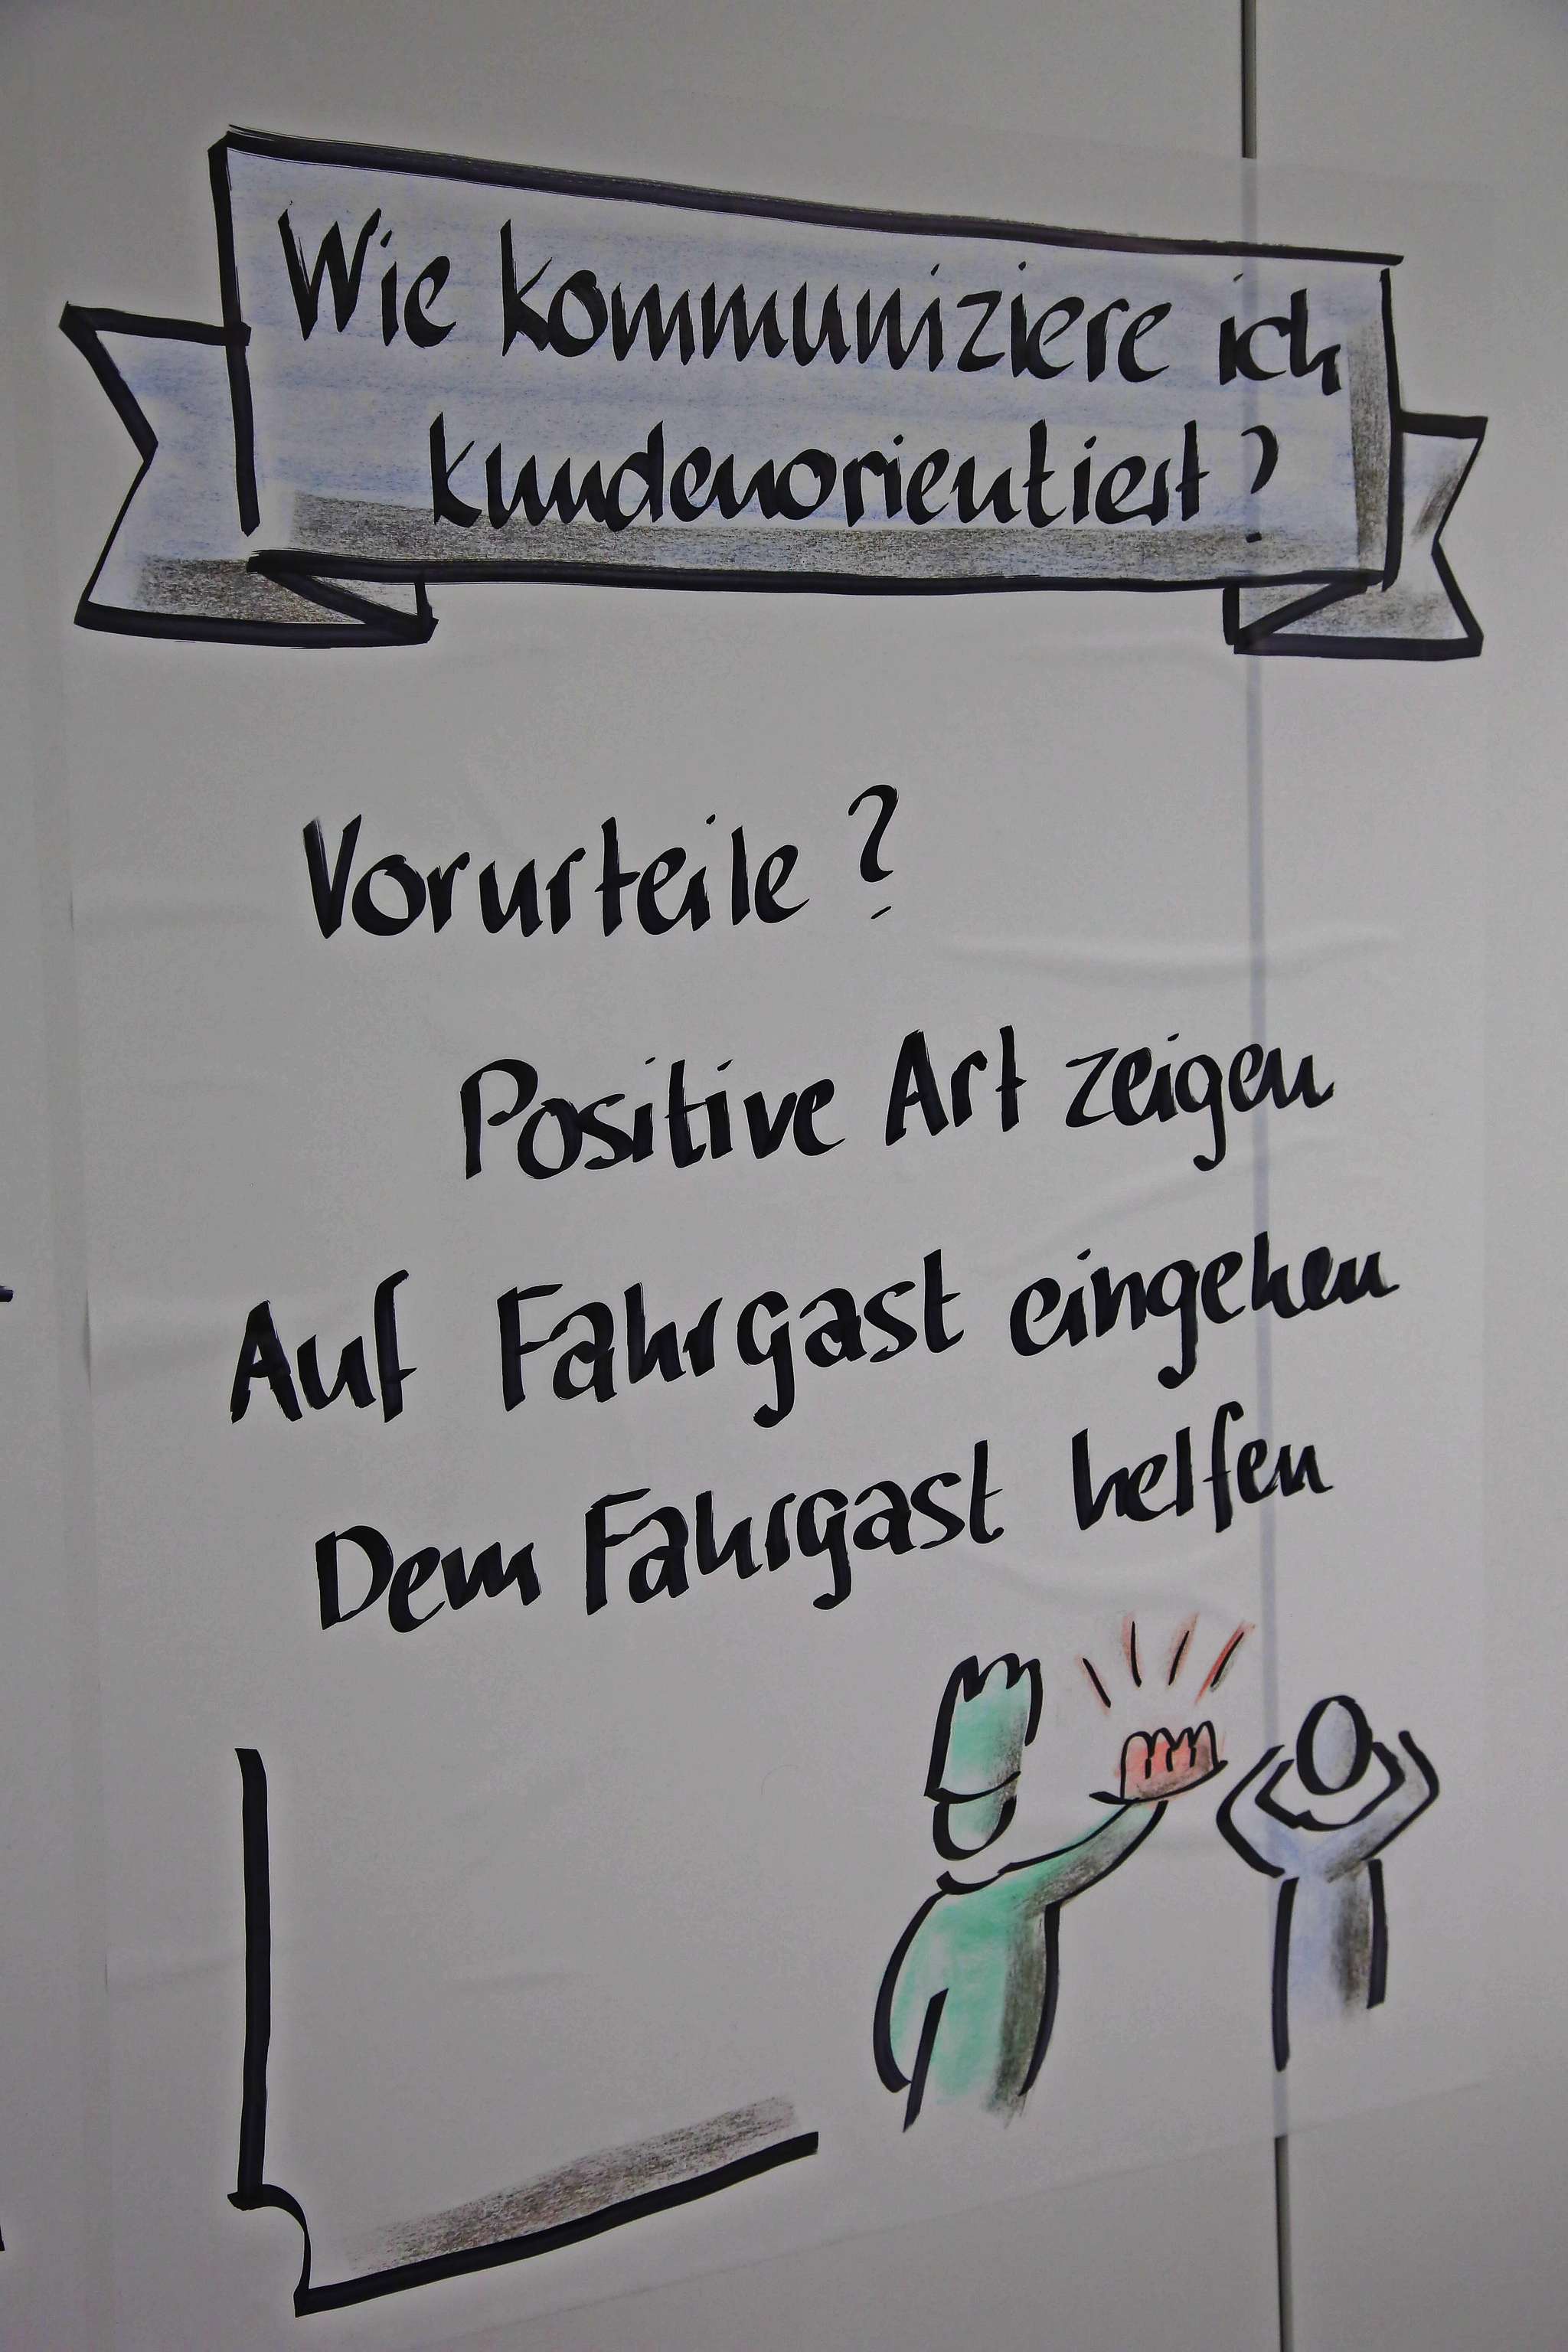 Wie kommuniziere ich
kundenorientiert?
Vorurteile?
Positive Art zeigen
Auf Fahrgast eingehen
Dem Fahrgast helfen